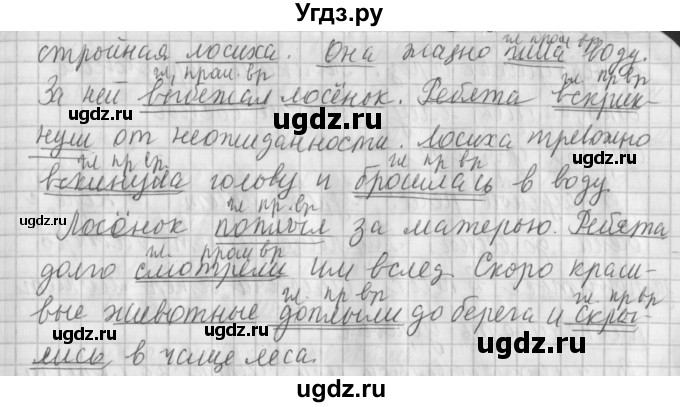 Угдз.ру
гл прош вр
стройная лосиха. Она жадно пила воду.
гл. прош. вр гл. пр. вр
За ней выбежал лосёнок. Ребята вскрик-
ugdz.ru
нули от неожиданности. Лосиха тревожно
ugdz.ru
гл пр вр. гл пр вр
вскинула голову и бросилась в воду.
ugdz.ru ugdz.ru
гл пр. вр
Лосёнок поплыл за матерью. Ребята
гл. прош вр
долго смотрели им вслед. Скоро краси-
гл пр вр гл. пр вр
вые животные доплыли до берега и скры-
ugdz.ru ugdz.ru
лись в чаще леса.
ugdz.ru ugdz.ru